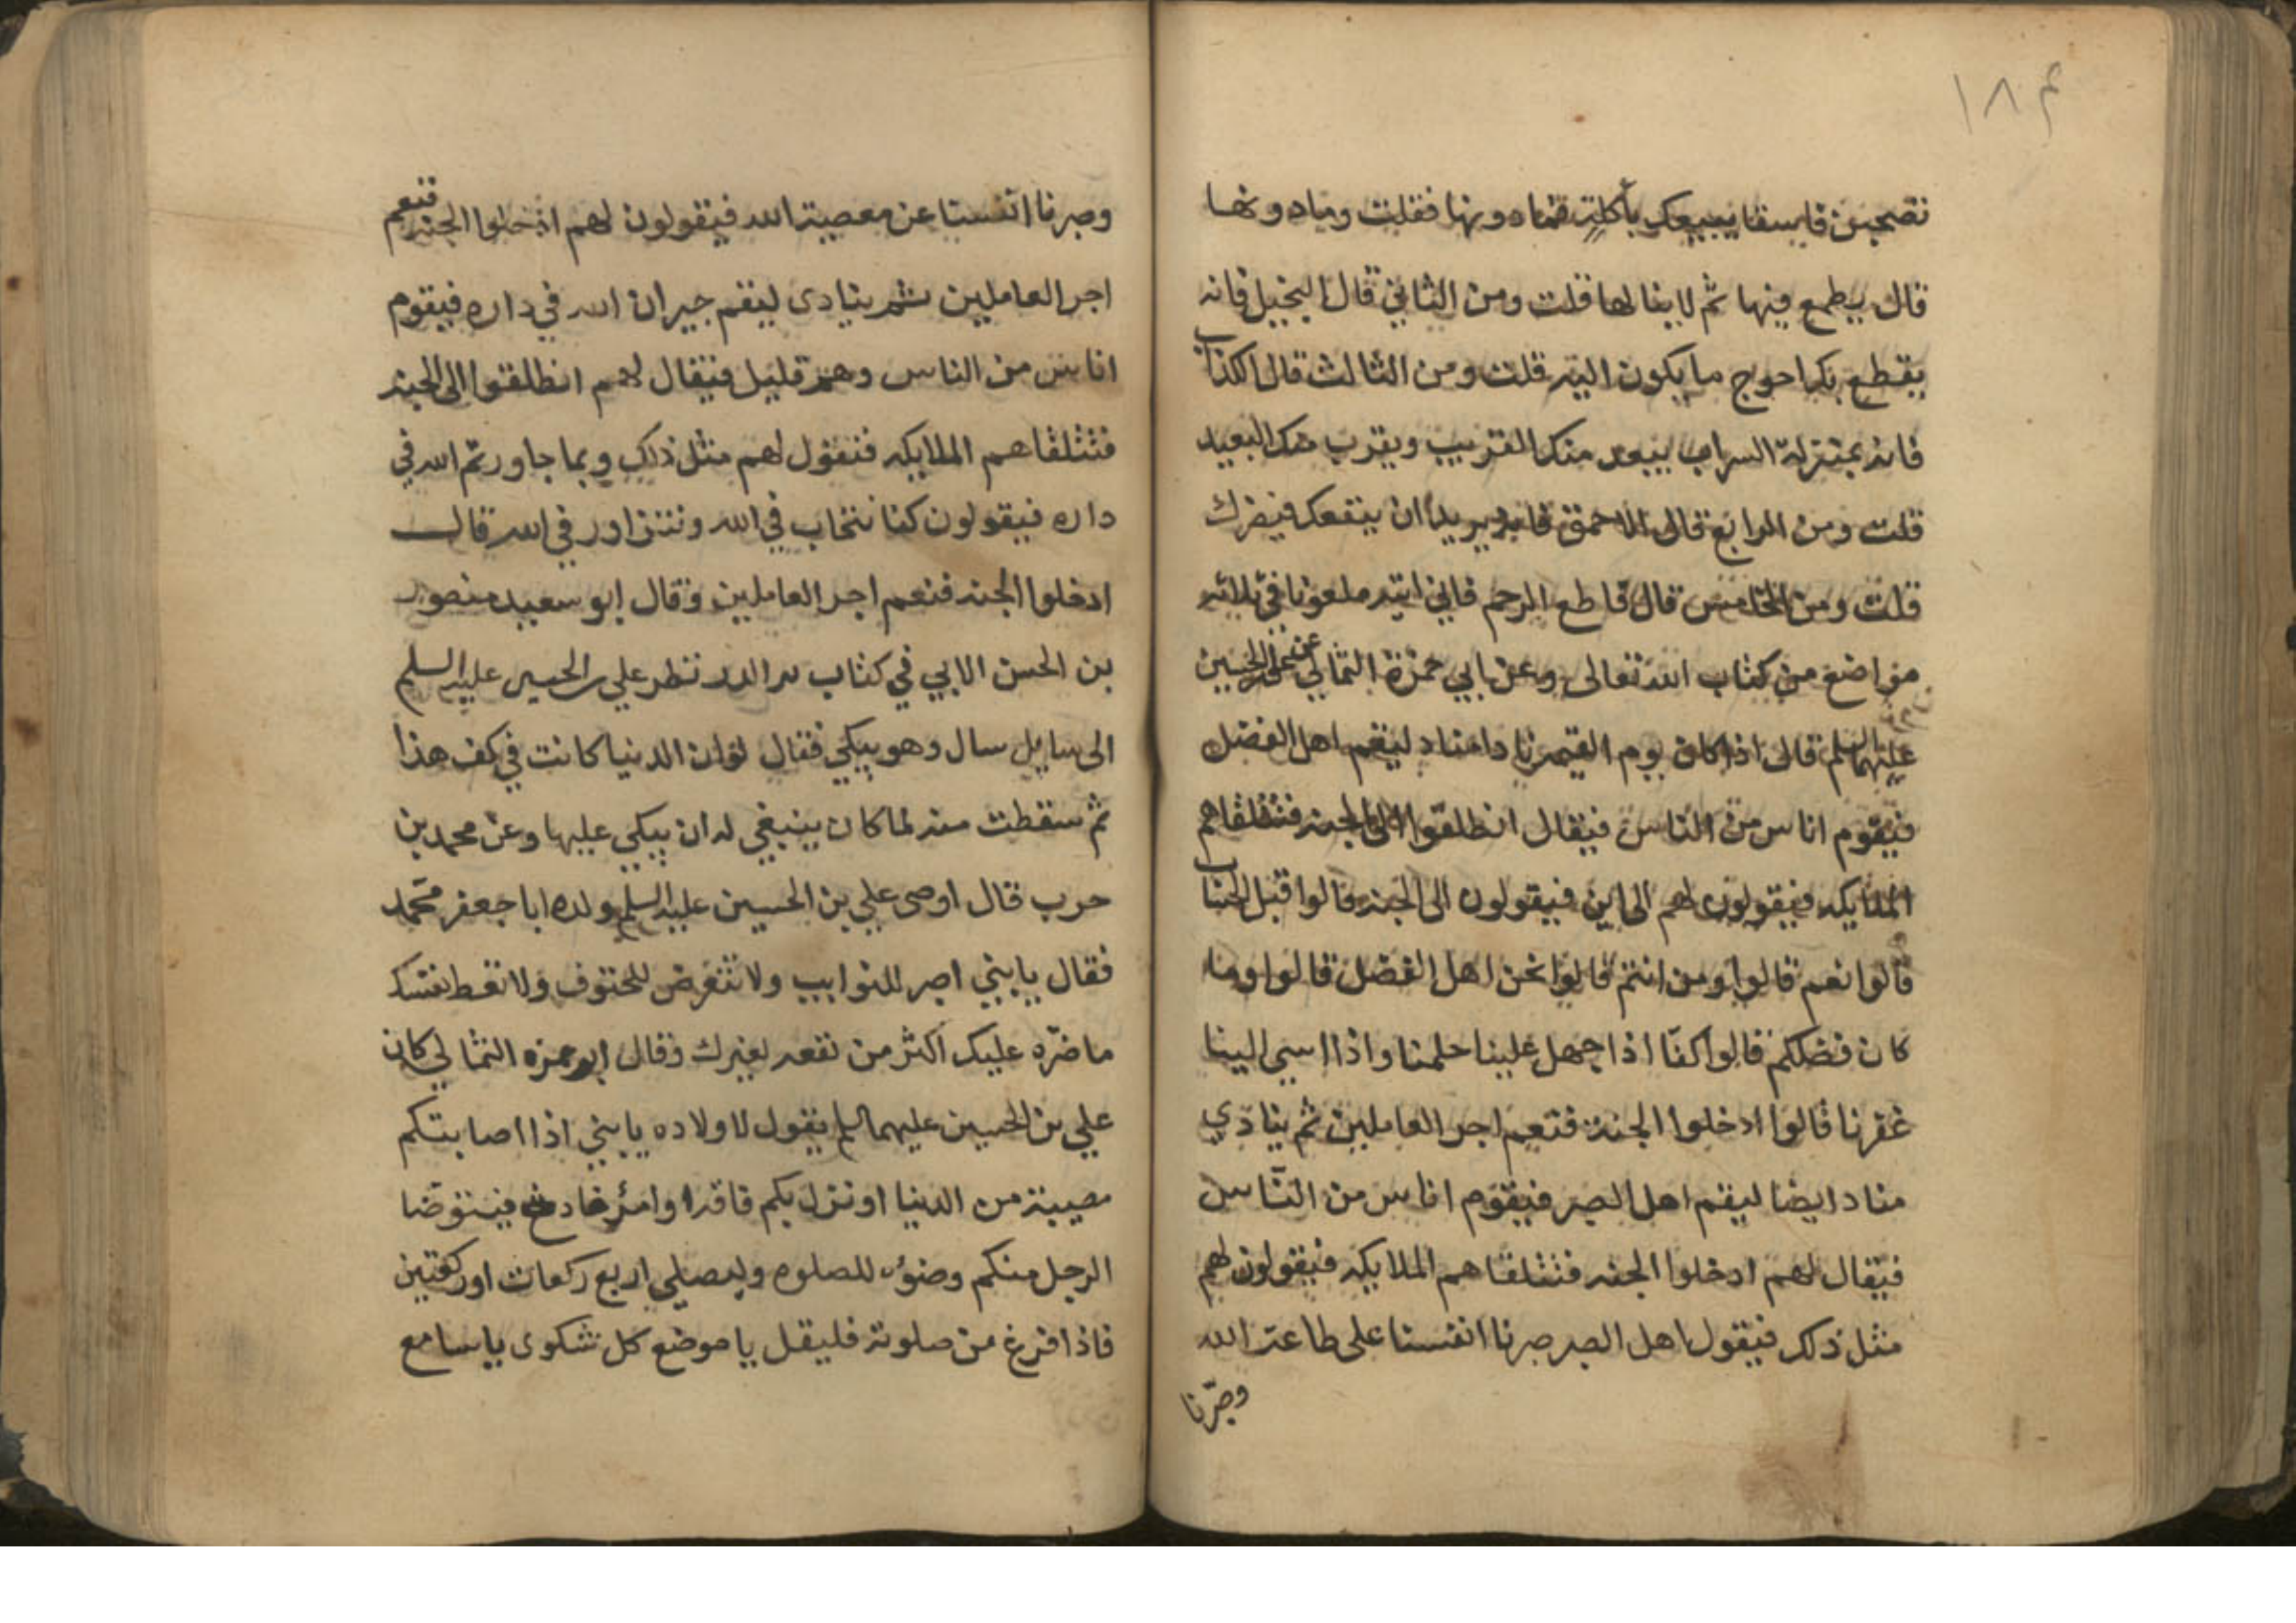 ١٨٤
تصحبن فاسقا يبيعك بأكلة فما دونها فقلت وما دونها
قال يطمع فيها ثم لا ينالها قلت ومن الثاني قال البخيل فانه
يقطع بك احوج ما يكون اليه قلت ومن الثالث قال الكذاب
فانه بمنزلة السراب يبعد منك القريب ويقرب منك البعيد
قلت ومن الرابع قال الاحمق فانه يريد ان ينفعك فيضرك
قلت ومن الخامس قال قاطع الرحم فاني رايته ملعونا في ثلاثه
مواضع من كتاب الله تعالى وعن ابي حمزة الثمالي عن علي بن الحسين
عليهما السلم قال اذا كان يوم القيمه نادا مناد ليقم اهل الفضل
فيقوم اناس من الناس فيقال انطلقوا الى الجنه فتتلقاهم
الملايكه فيقولون لهم الى اين فيقولون الى الجنه قالوا قبل الحساب
قالوا نعم قالوا ومن انتم قالوا نحن اهل الفضل قالوا وما
كان فضلكم قالوا كنا اذا جهل علينا حلمنا واذا اسي الينا
غفرنا قالوا ادخلوا الجنة فنعم اجر العاملين ثم ينادي
مناد ايضا ليقم اهل الصبر فيقوم اناس من الناس
فيقال لهم ادخلوا الجنه فتتلقاهم الملايكه فيقولون لهم
مثل ذلك فيقول اهل الصبر صبرنا انفسنا على طاعة الله
وصبرنا
وصبرنا انفسنا عن معصية الله فيقولون لهم ادخلوا الجنه فنعم
اجر العاملين ثم ينادى ليقم جيران الله في داره فيقوم
اناس من الناس وهم قليل فيقال لهم انطلقوا الى الجنه
فتتلقاهم الملايكه فتقول لهم مثل ذلك وبما جاورتم الله في
داره فيقولون كنا نتحاب في الله ونتزاور في الله قال
ادخلوا الجنه فنعم اجر العاملين وقال ابو سعيد منصور
بن الحسن الابي في كتاب نثر الدر نظر علي بن الحسين عليه السلم
الى سايل سال وهو يبكي فقال لو ان الدنيا كانت في كف هذا
ثم سقطت منه لما كان ينبغي له ان يبكي عليها وعن محمد بن
حرب قال اوصى علي بن الحسين عليه السلم ولده ابا جعفر محمد
فقال يا بني اصبر للنوايب ولا تتعرض للحتوف ولا تعط نفسك
ما ضره عليك اكثر من نفعه لغيرك وقال ابو حمزه الثمالي كان
علي بن الحسين عليهما السلم يقول لاولاده يا بني اذا اصابتكم
مصيبة من الدنيا او نزل بكم فاقه او امر فادح فيتوضا
الرجل منكم وضوء للصلوه وليصلي اربع ركعات او ركعتين
فاذا افرغ من صلوته فليقل يا موضع كل شكوى يا سامع